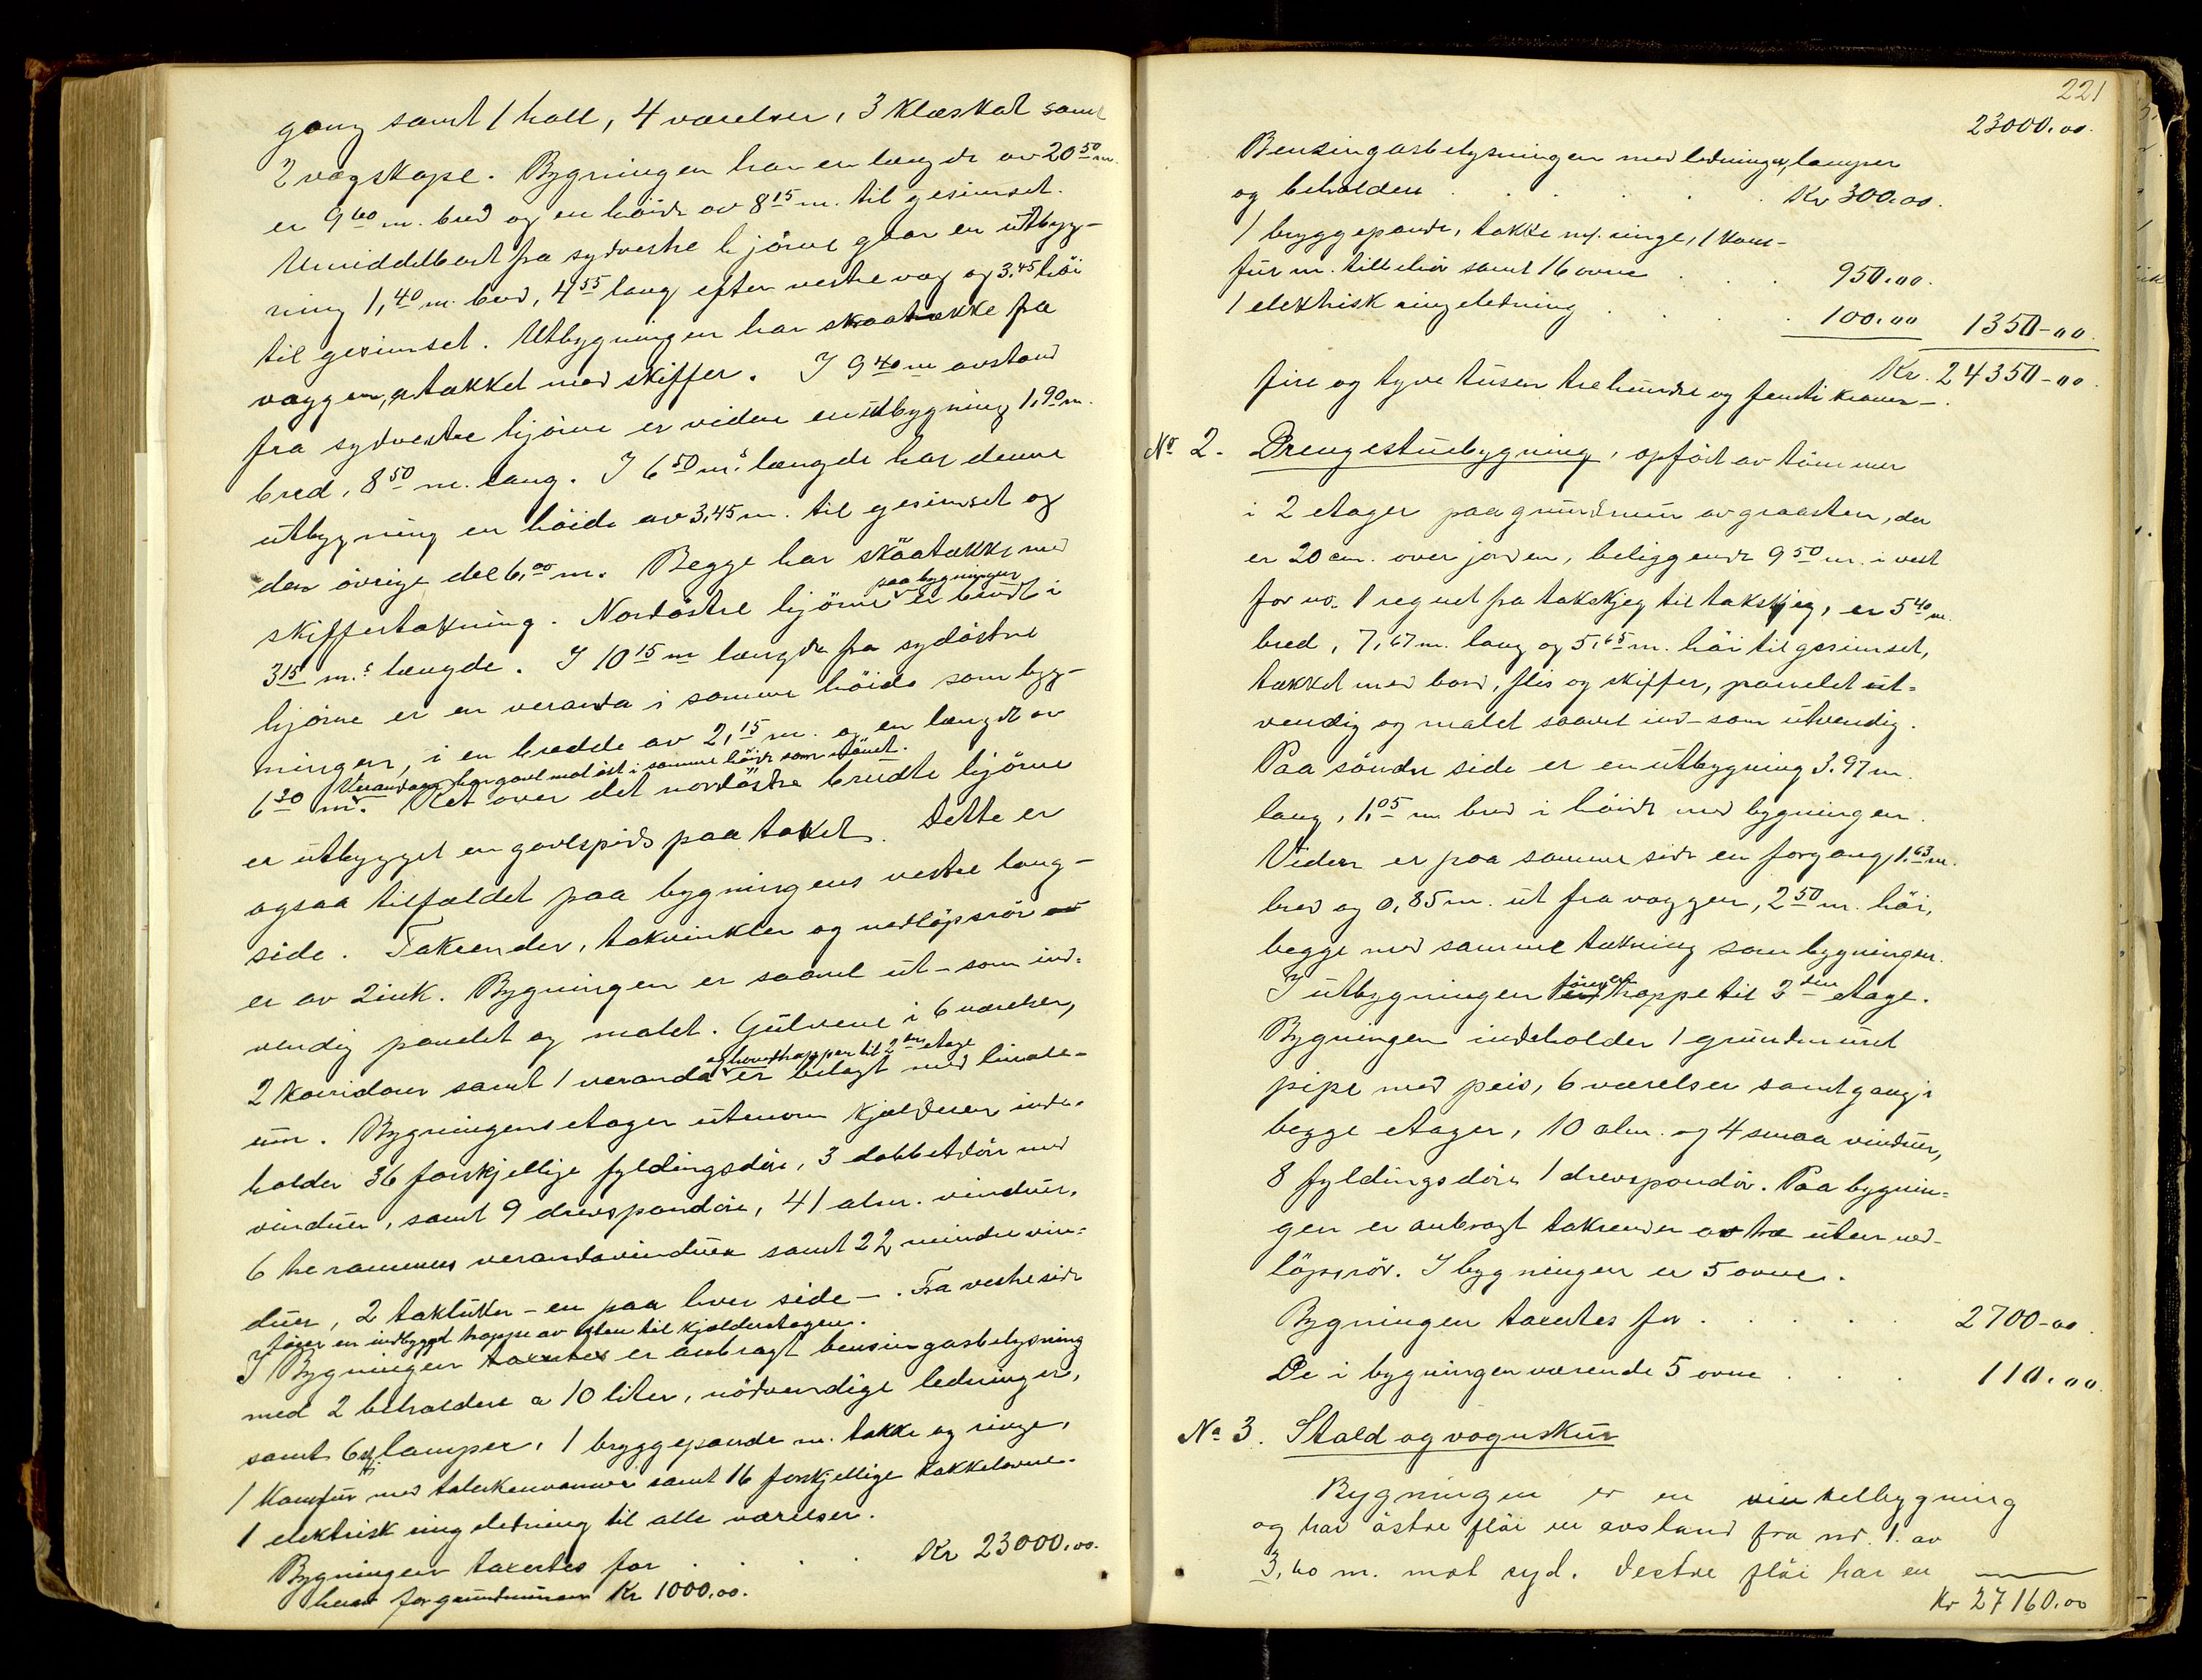 gang samt 1 hall, 4 værelser, 3 klæskot samt
2 vægskape. Bygningen har en længde av 20 50 m.
er 9 60 m. bred og en høide av 8 15 m. til gesimset.
Umiddelbart fra sydvestre hjörne gaar en utbyg-
ning 1,40 m. bred, 4 55 lang efter vestre væg og 3.45 höi
til gesimset. Utbygningen har skaatække fra
væggen, tækket med skiffer. I 9 40 m avstand
fra sydvestre hjörne er videre en utbygning 1,90 m.
bred, 8 50 m. lang. I 6 50 m.s længde har denne
utbygning en höide av 3,45 m. til gesimset og
den övrige del 6,00 m. Begge har skåatække med
skiffertækning. Nordöstre hjörne paa bygningen er brudt i
3 15 m.s længde. I 10 15 m længde fra sydöstre
hjörne er en veranda i samme höide som byg-
ningen, i en bredde av 2,15 m. og en længde av
Verandaen har gavl mot öst i samme höide som mönet.
6 30 m. Ret over det nordöstre brudte hjörne
er utbygget en gavlspids paa taket. Dette er
ogsaa tilfældet paa bygningens vestre lang-
side. Takrender, takvinkler og nedlöpsrör
er av zink. Bygningen er saavel ut- som ind-
vendig panelet og malet. Gulvene i 6 værelser,
2 korridorer samt 1 veranda og hovedtrappen til 2 en etage er belagt med linole-
um. Bygningens etager utenom kjelderen inde-
holder 36 forskjellige fyldingsdöre, 3 dobbeltdöre med
vinduer, samt 9 drevspandöre, 41 alm. vinduer,
6 tre rammers verandavinduer samt 22 mindre vin-
duer, 2 takluker - en paa hver side -. Fra vestre side
förer en indbygget trappe av sten til kjelderetagen.
I Bygningen taxertes er anbragt bensingasbelysning
med 2 beholdere a 10 liter, nödvendige ledninger,
samt 6 lamper, 1 bryggepande m. takke og ringe,
1 komfur med talerkenvarmer samt 16 forskjellige kakkelovne.
1 elektrisk ringeledning til alle værelser.
Bygningen taxertes for . . . . Kr 23000.00.
herav for grundmuren Kr 1000,00.
221
23000.00.
Bensingasbelysningen med ledninger, lamper
og beholdere . . . . . Kr 300.00.
1 bryggepande, takke m/. ringe, 1 kom-
fur m. tilbehör samt 16 ovne . . . 950.00.
1 elektrisk ringeledning . . . . 100.00 1350-00.
Kr. 24350-00.
fire og tyve tusen trehundre og femti kroner -.
No 2. Drengestuebygning, opfört av tömmer
i 2 etager paa grundmur av graasten, der
er 20 cm. over jorden, beliggende 9 50 m. i vest
for no. 1 regnet fra takskjeg til takskjeg, er 5 40 m.
bred, 7,67 m. lang og 5,65 m. höi til gesimset,
tækket med bord, flis og skiffer, panelet ut-
vendig og malet saavel ind- som utvendig.
Paa söndre side er en utbygning 3.97 m.
lang, 1,05 m bred i höide med bygningen.
Videre er paa samme side en forgang, 1.63 m.
bred og 0,85 m. ut fra væggen, 2 50 m. höi,
begge med samme tækning som bygningen.
I utbygningen er fører trappe til 2 den etage.
Bygningen indeholder 1 grundmuret
pipe med peis, 6 værelser samt gang i
begge etager, 10 alm. og 4 smaa vinduer,
8 fyldingsdöre 1 drevspandör. Paa bygnin-
gen er anbragt takrender av træ uten ned-
löpsrör. I bygningen er 5 ovne.
Bygningen taxertes for . . . . . 2700-00.
De i bygningen værende 5 ovne . . . 110.00.
No 3. Stald og vognskur
Bygningen er en vinkelbygning
og har östre flöi en avstand fra no. 1. av
3,60 m. mot syd. Vestre flöi har en
Kr 27160.00